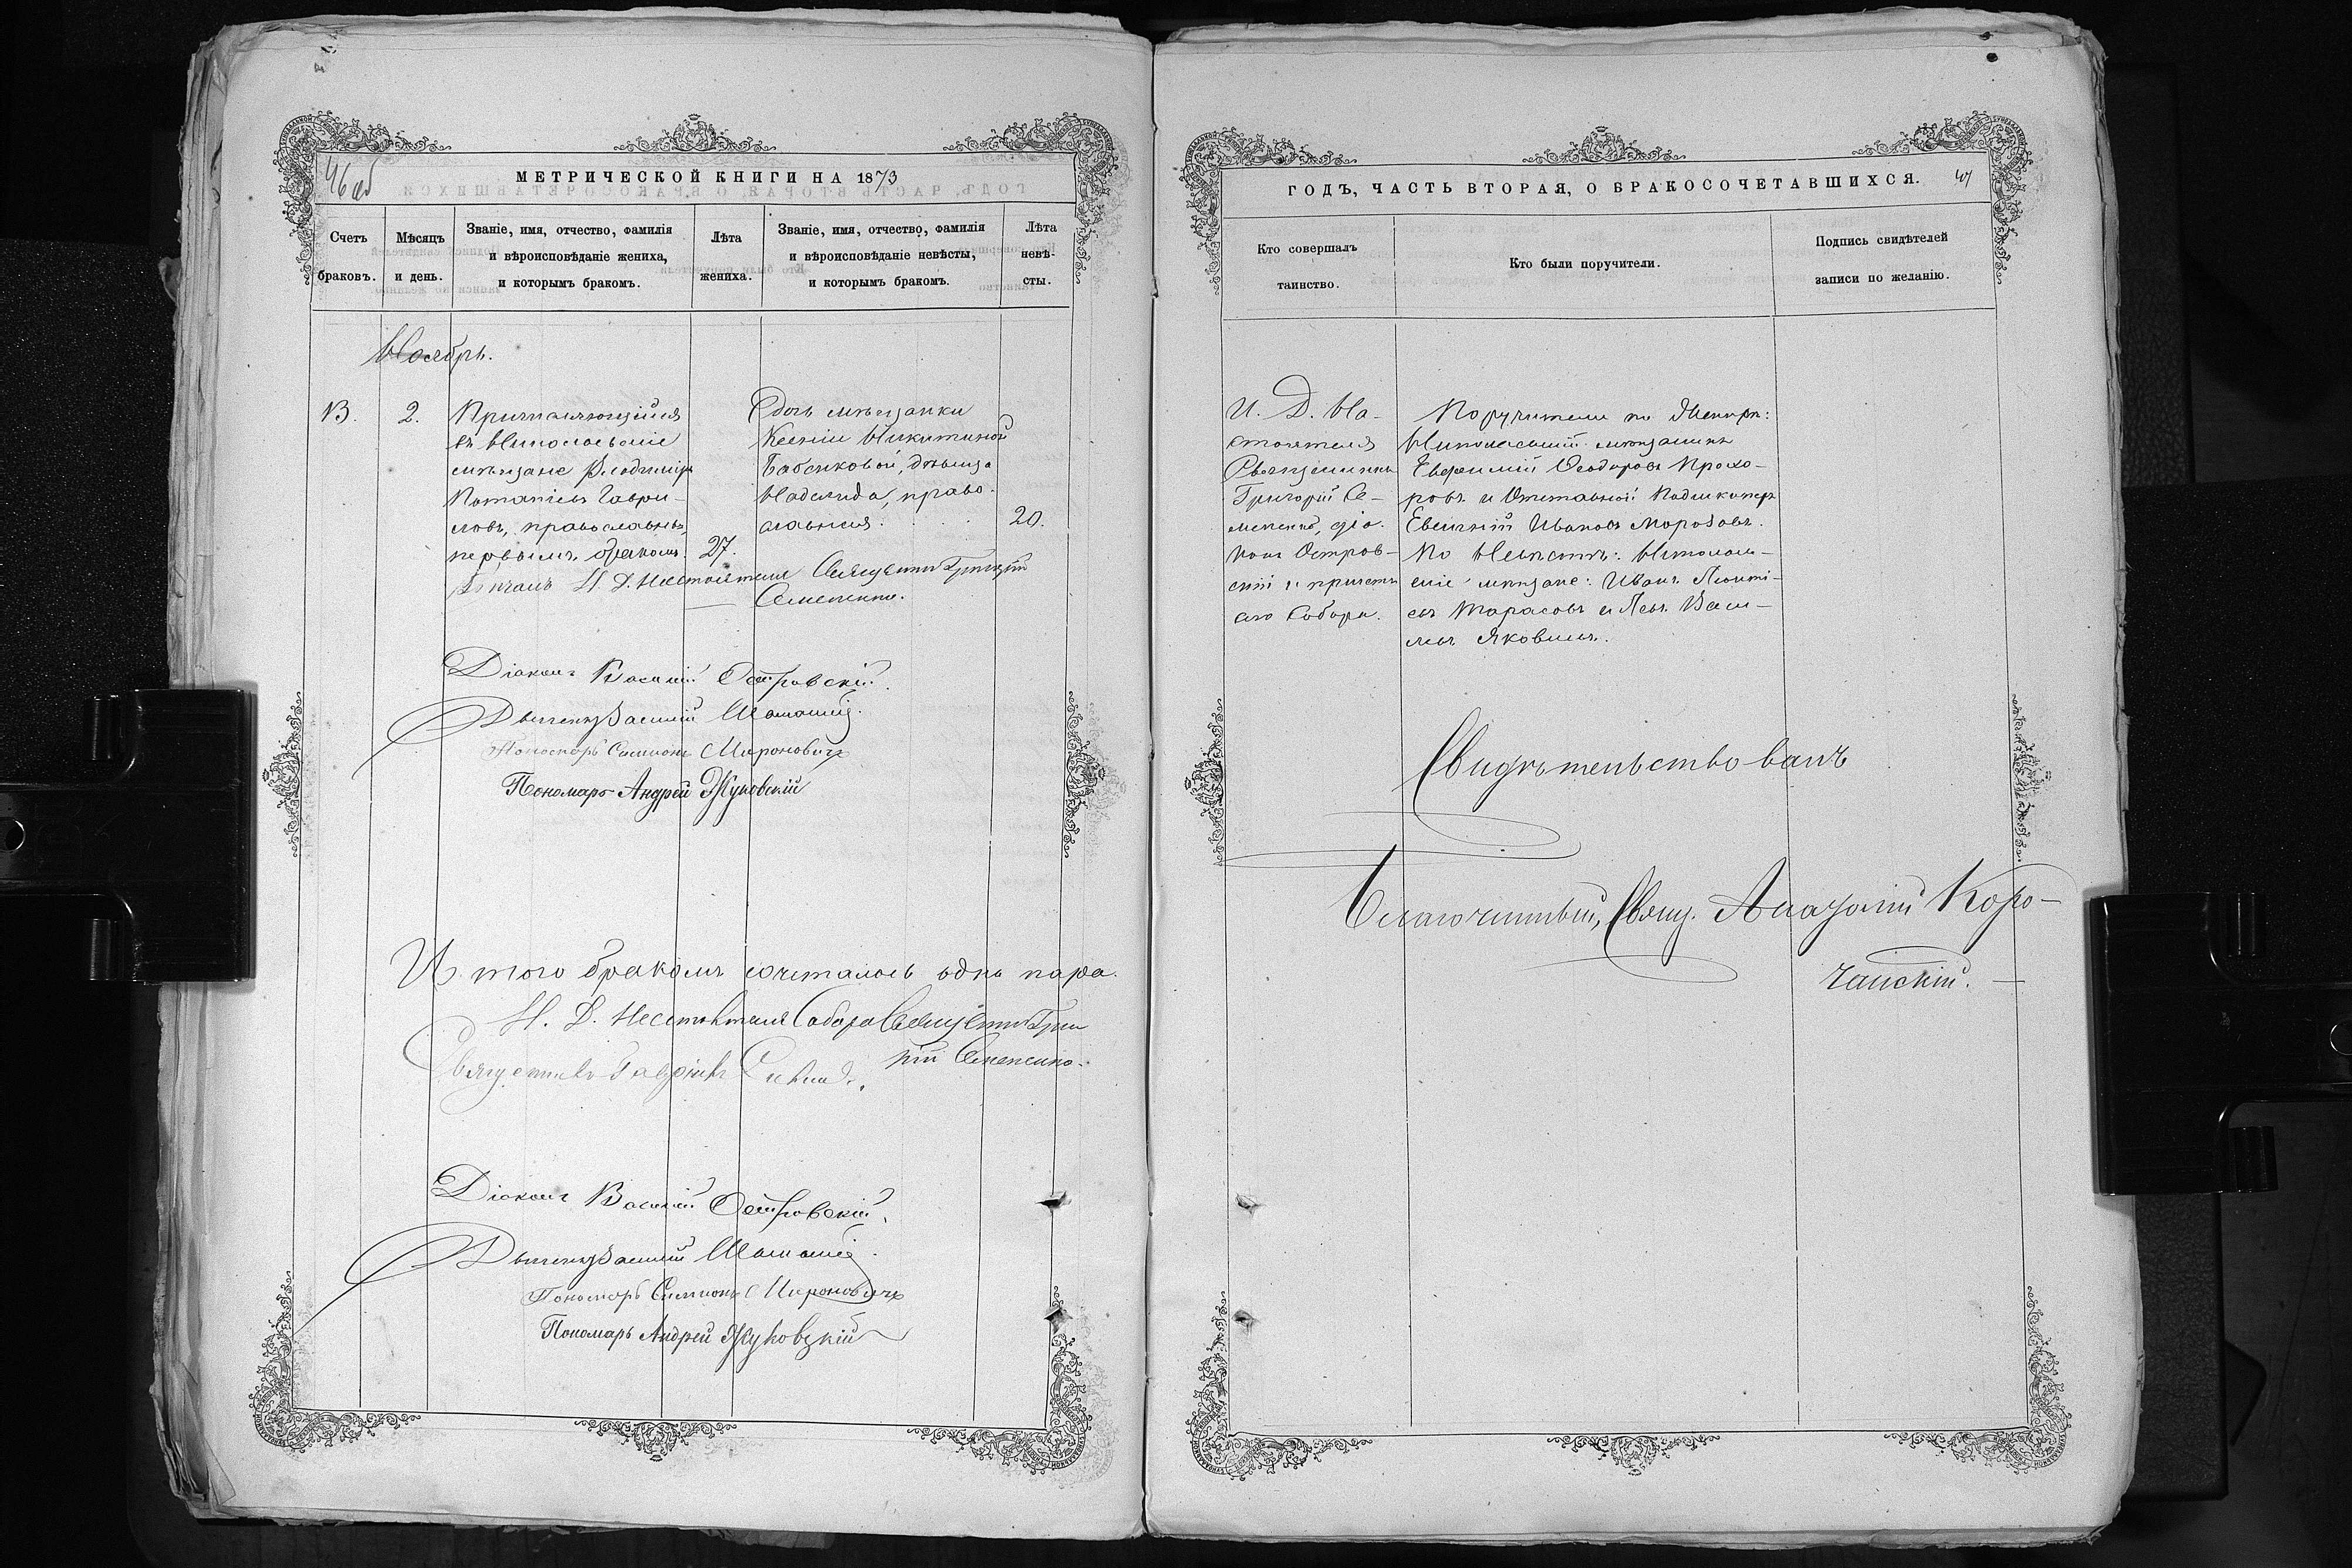 46 об
МЕТРИЧЕСКОЙ КНИГИ НА 1873
Счетъ браковъ.
Мѣсяцъ и день.
Званіе, имя, отчество, фамилія
и вѣроисповѣданіе жениха,
и которымъ бракомъ.
Лѣта жениха.
Званіе, имя, отчество, фамилія
и вѣроисповѣданіе невѣсты,
и которымъ бракомъ.
Лѣта невѣ-
сты.
Ноябрь.
13.
2.
Причисляющійся
въ Николаевскіе
мѣщане Владиміръ
Потапіевъ Гаври-
ловъ, православнъ,
первымъ бракомъ.
27.
Дочь мѣщанки
Ксеніи Никитиной
Бабенковой, дѣвица
Надежда, право-
славная.
20.
Вѣнчалъ И. Д. Настоятеля Священникъ Григорій
Семененко.
Діаконъ Василій Островскій.
Василій
Пономарь Симеонъ Мироновичъ
Пономарь Андрей Жуковскій
И того бракомъ сочеталось одна пара.
И. Д. Настоятеля Собора Священникъ Григо
рій Семененко.
Священникъ Гавріилъ
Діаконъ Василій Островскій.
Василій
Пономарь Симеонъ Мироновичъ
Пономарь Андрей Жуковскій
ГОДЪ, ЧАСТЬ ВТОРАЯ, О БРАКОСОЧЕТАВШИХСЯ.
47
Кто совершалъ
таинство.
Кто были поручители.
Подпись свидѣтелей
записи по желанію.
И. Д. На-
стоятеля
Священникъ
Григорій Се-
мененко, діа-
конъ Остров-
скій и причетъ
сего Собора.
Поручители по Женихѣ:
Николаевскій мѣщанинъ
Евфимій Ѳеодоровъ Прохо-
ровъ и Отставной Подшкиперъ
Евгеній Ивановъ Морозовъ.
По Невѣстѣ: Николаев-
скіе мѣщане: Иванъ Леонті-
евъ Тарасовъ и Левъ Васи-
льевъ Яковлевъ.
Свидѣтельствовалъ
Благочинный, Свящ. Анатолій Коро-
чанскій.